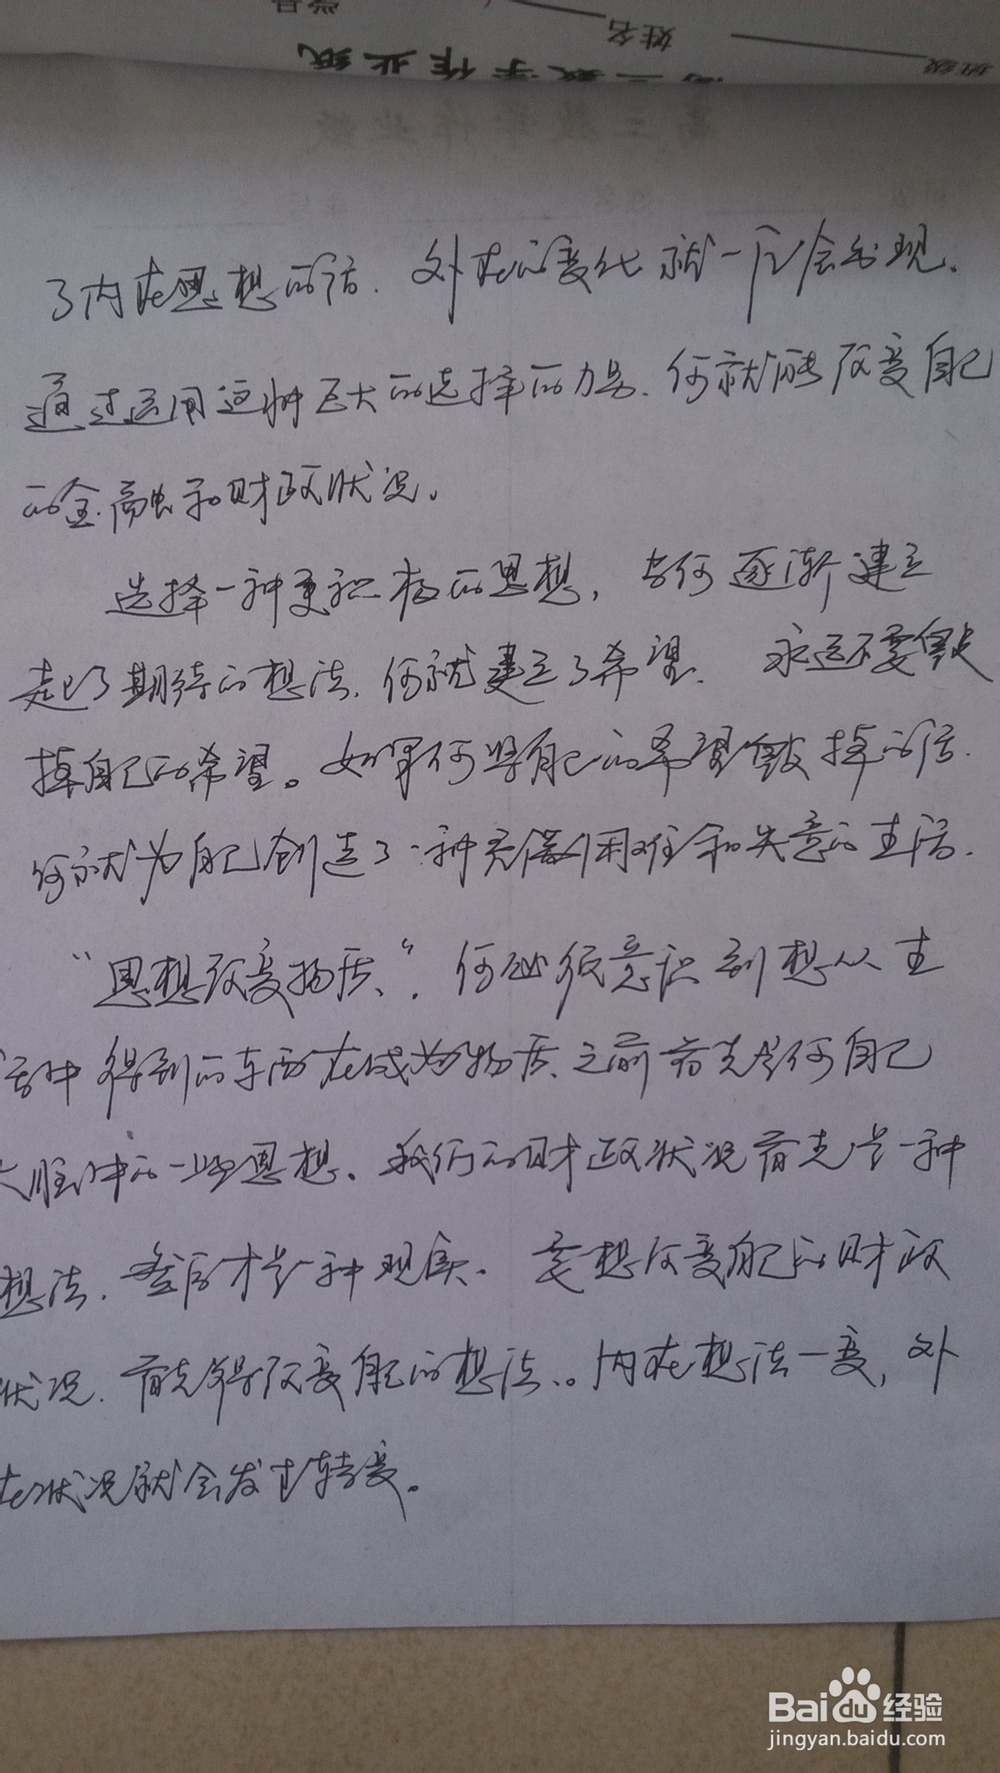 学号
姓名
班级
高三数学作业纸
高三数学作业纸
了内在思想的话，外在的变化就一定会出现。
通过运用这种巨大的选择的力量，你就能改变自己
的金融和财政状况。
选择一种更积极的思想，当你逐渐建立
起了期待的想法，你就建立了希望。永远不要毁
掉自己的希望。如果你将自己的希望毁掉的话，
你就为自己创造了一种充满困难和失意的生活。
“思想改变物质”，你必须意识到想从生
活中得到的东西在成为物质之前首先是你自己
大脑中的一些思想。我们的财政状况首先是一种
想法，然后才是一种现实。要想改变自己的财政
状况，首先得改变自己的想法。内在想法一变，外
在状况就会发生转变。
Baidu经验
jingyan.baidu.com